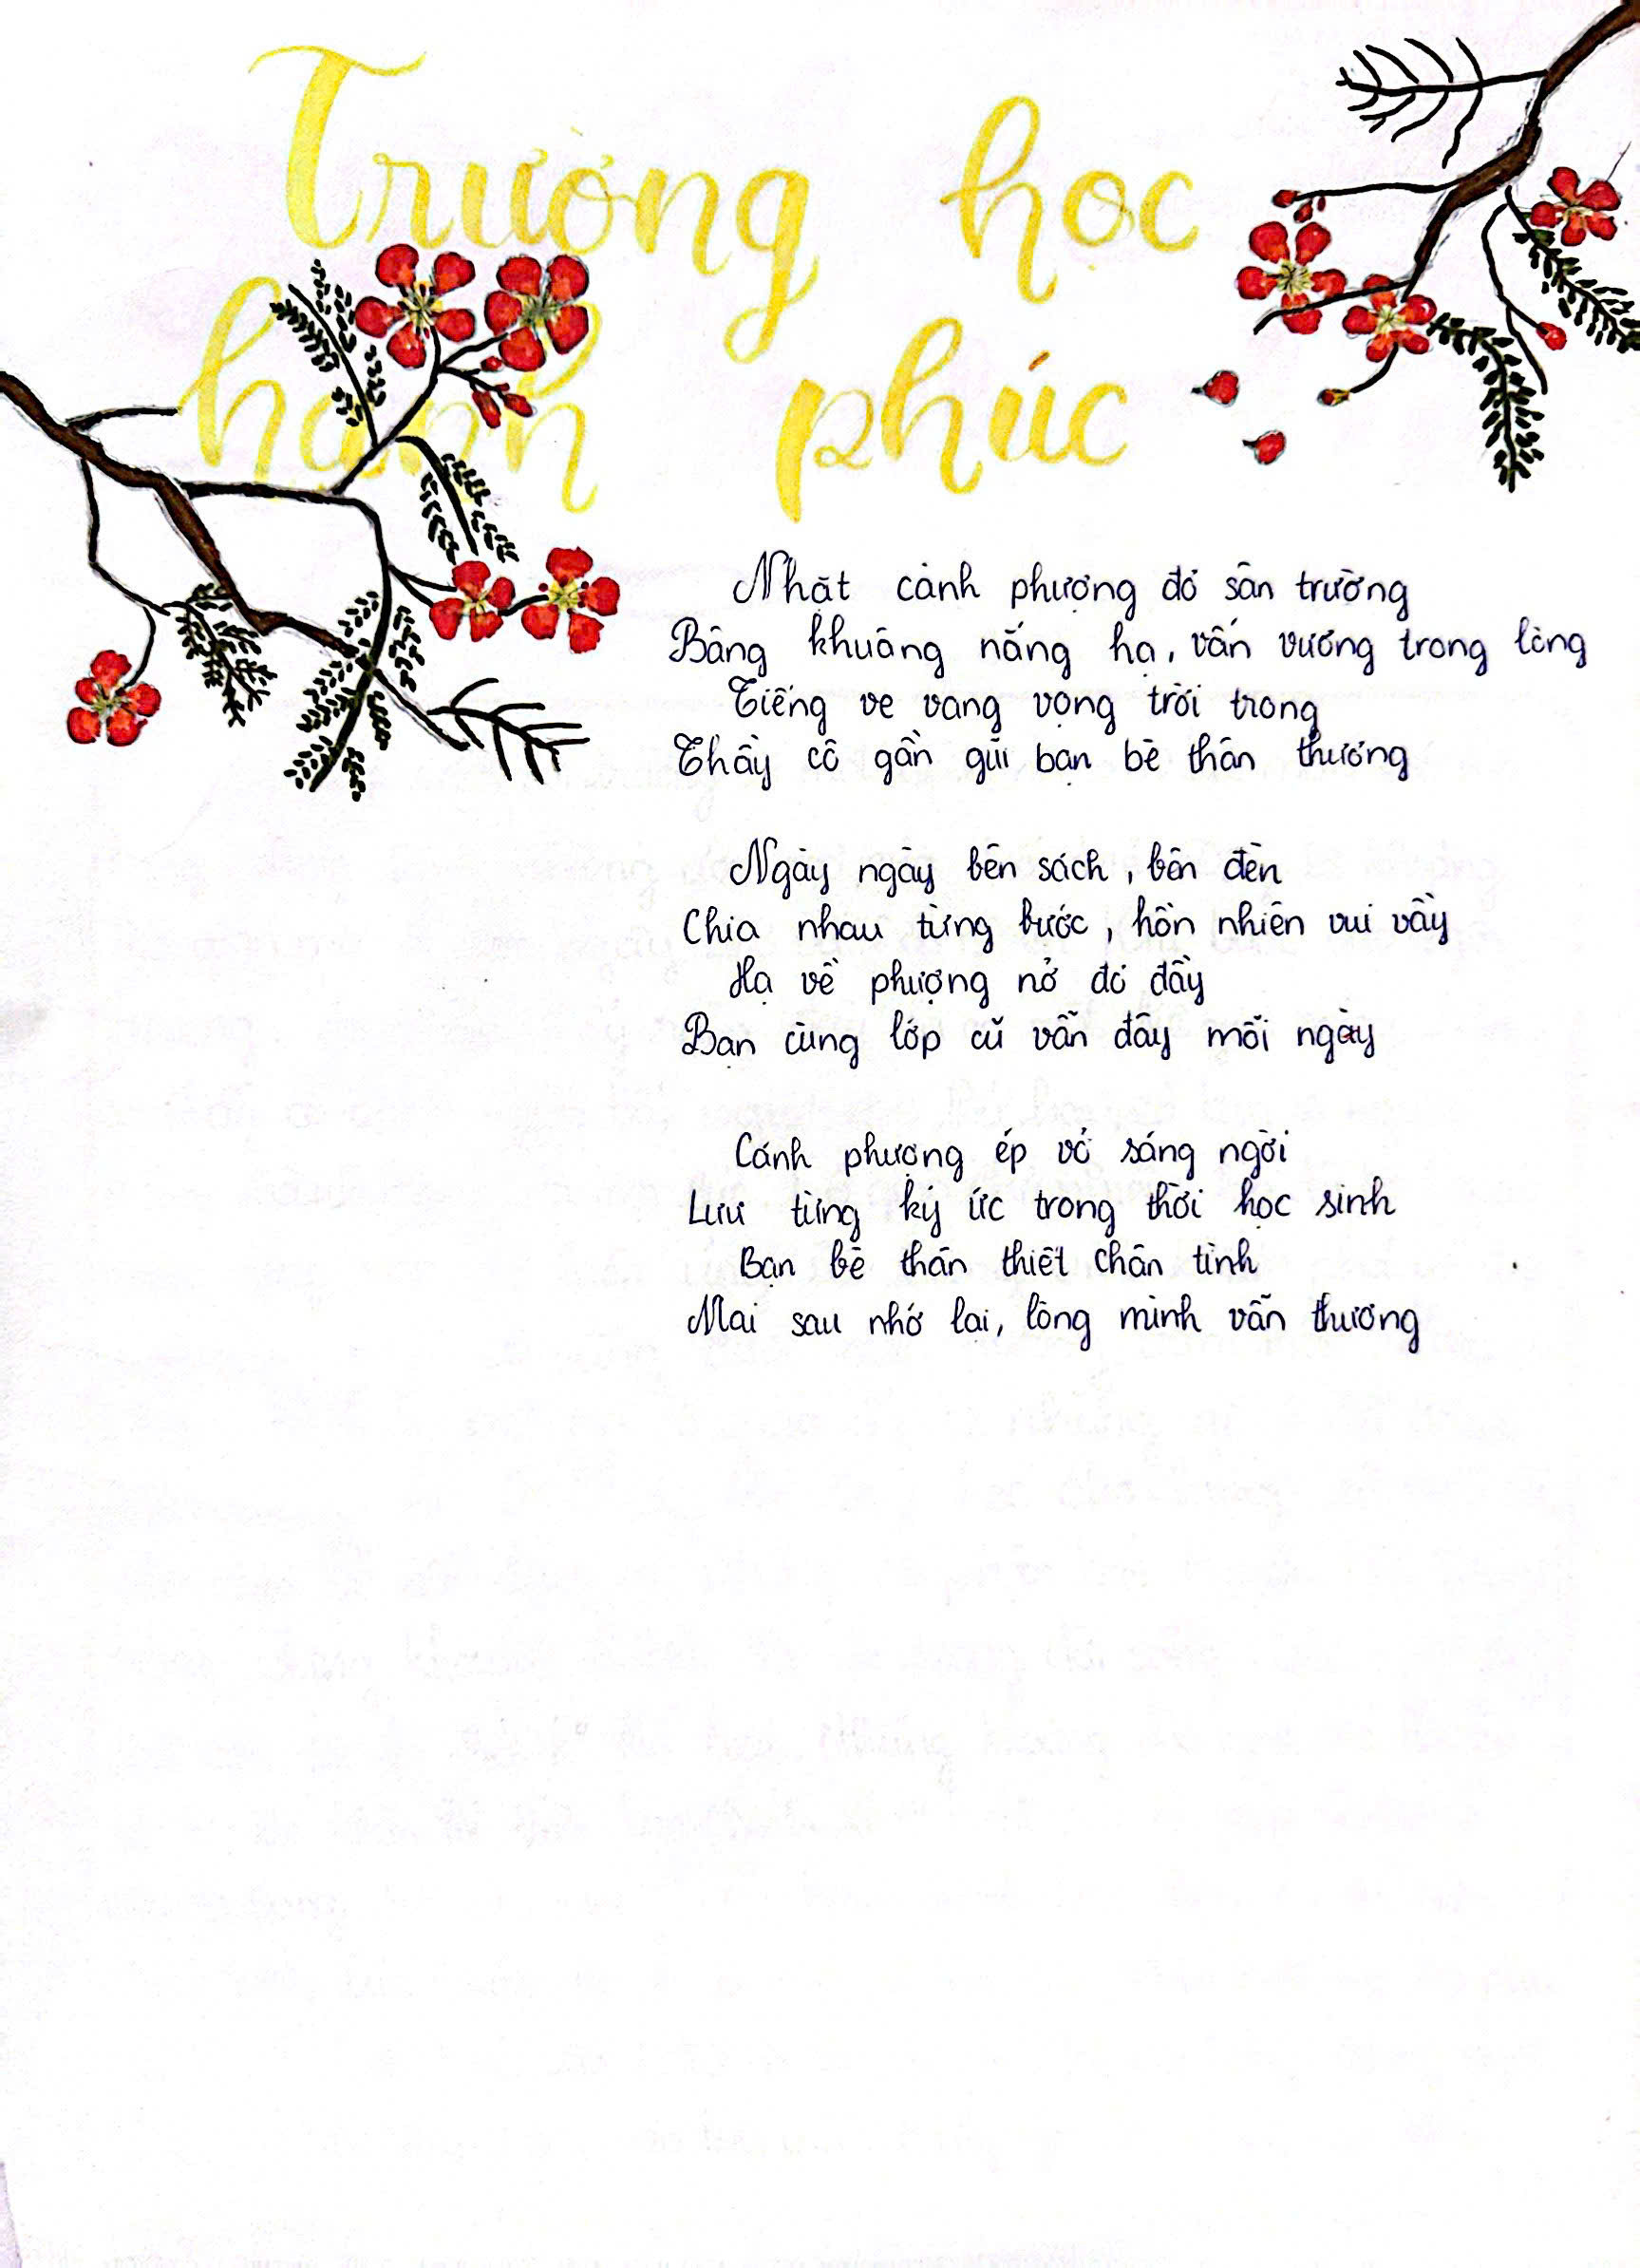 Trường học
hạnh phúc
Nhặt cành phượng đỏ sân trường
Bâng khuâng nắng hạ, vấn vương trong lòng
Tiếng ve vang vọng trời trong
Thầy cô gần gũi bạn bè thân thương
Ngày ngày bên sách, bên đèn
Chia nhau từng bước, hồn nhiên vui vầy
Hạ về phượng nở đỏ đầy
Bạn cùng lớp cũ vẫn đây mỗi ngày
Cánh phượng ép vở sáng ngời
Lưu từng ký ức trong thời học sinh
Bạn bè thân thiết chân tình
Mai sau nhớ lại, lòng mình vẫn thương